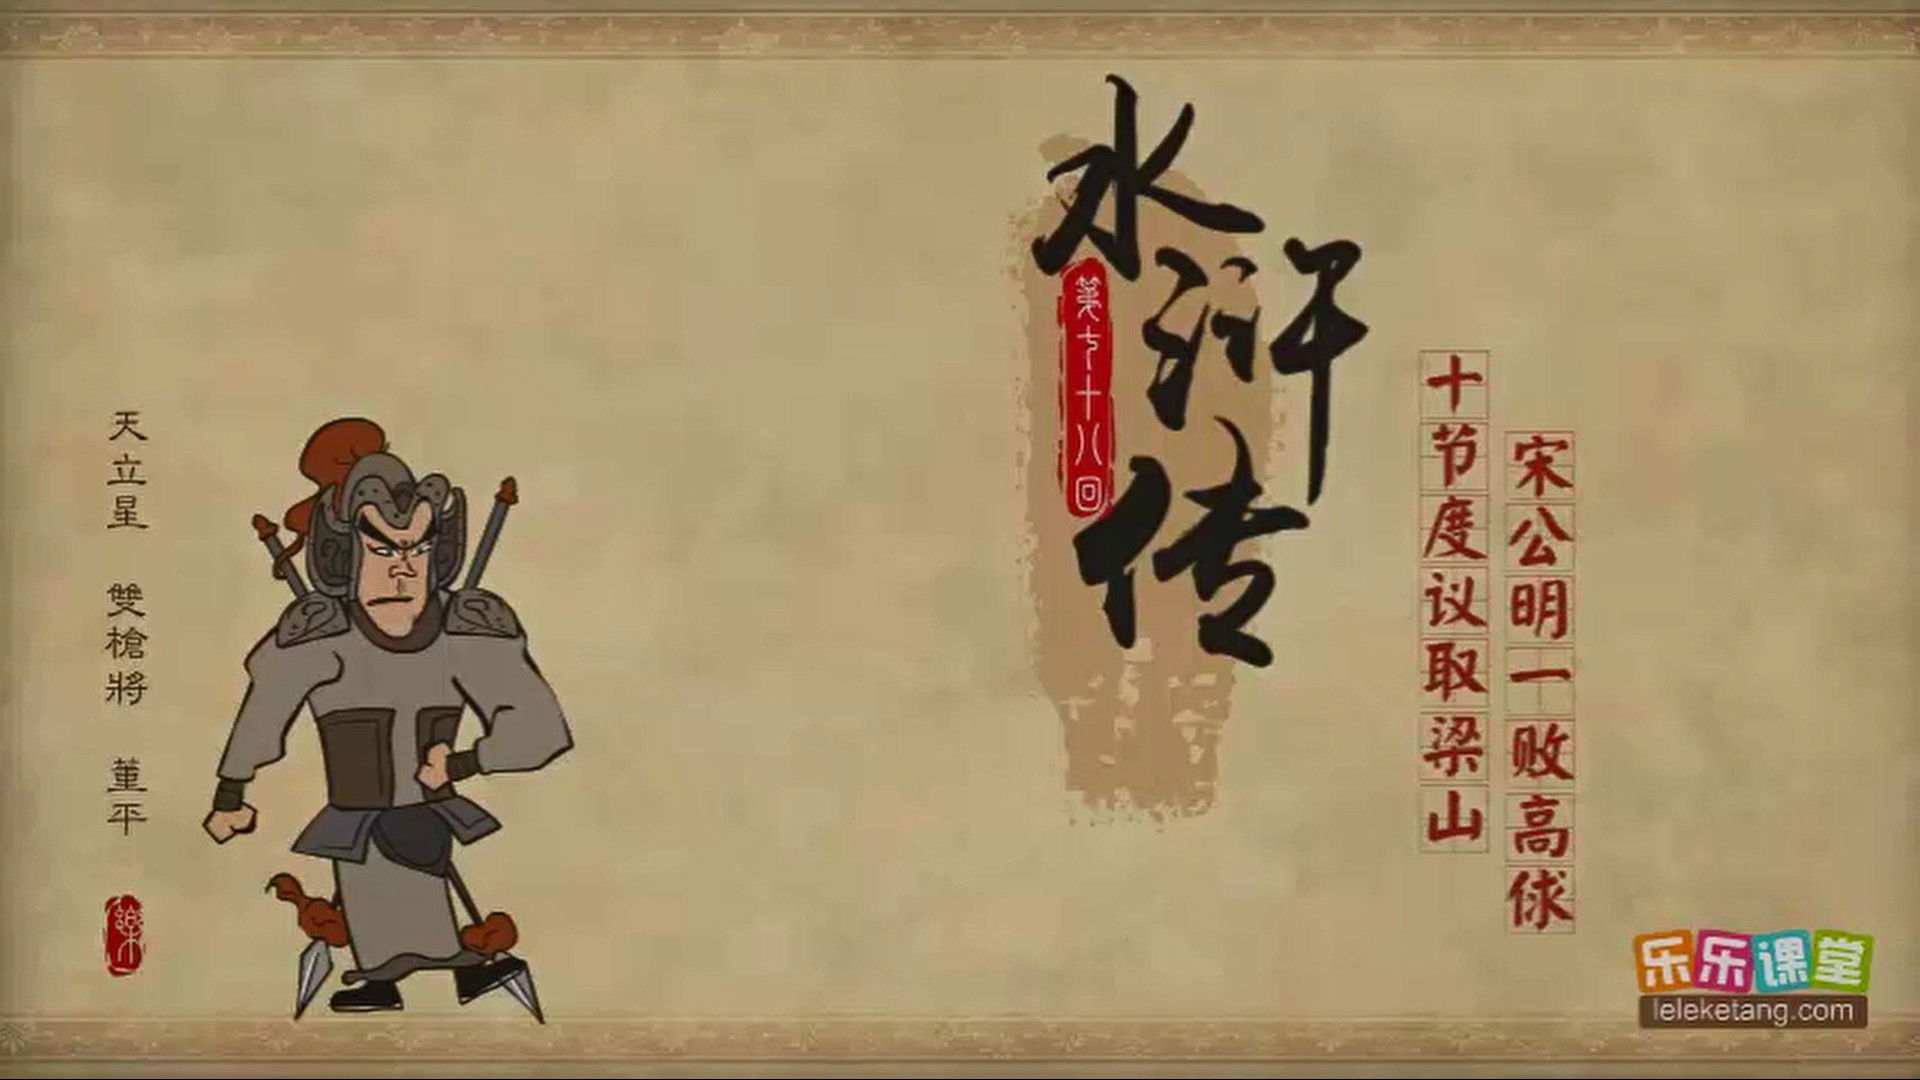 水浒传
第七十八回
十节度议取梁山
宋公明一败高俅
天立星 雙槍將 董平
樂
乐乐课堂
leleketang.com